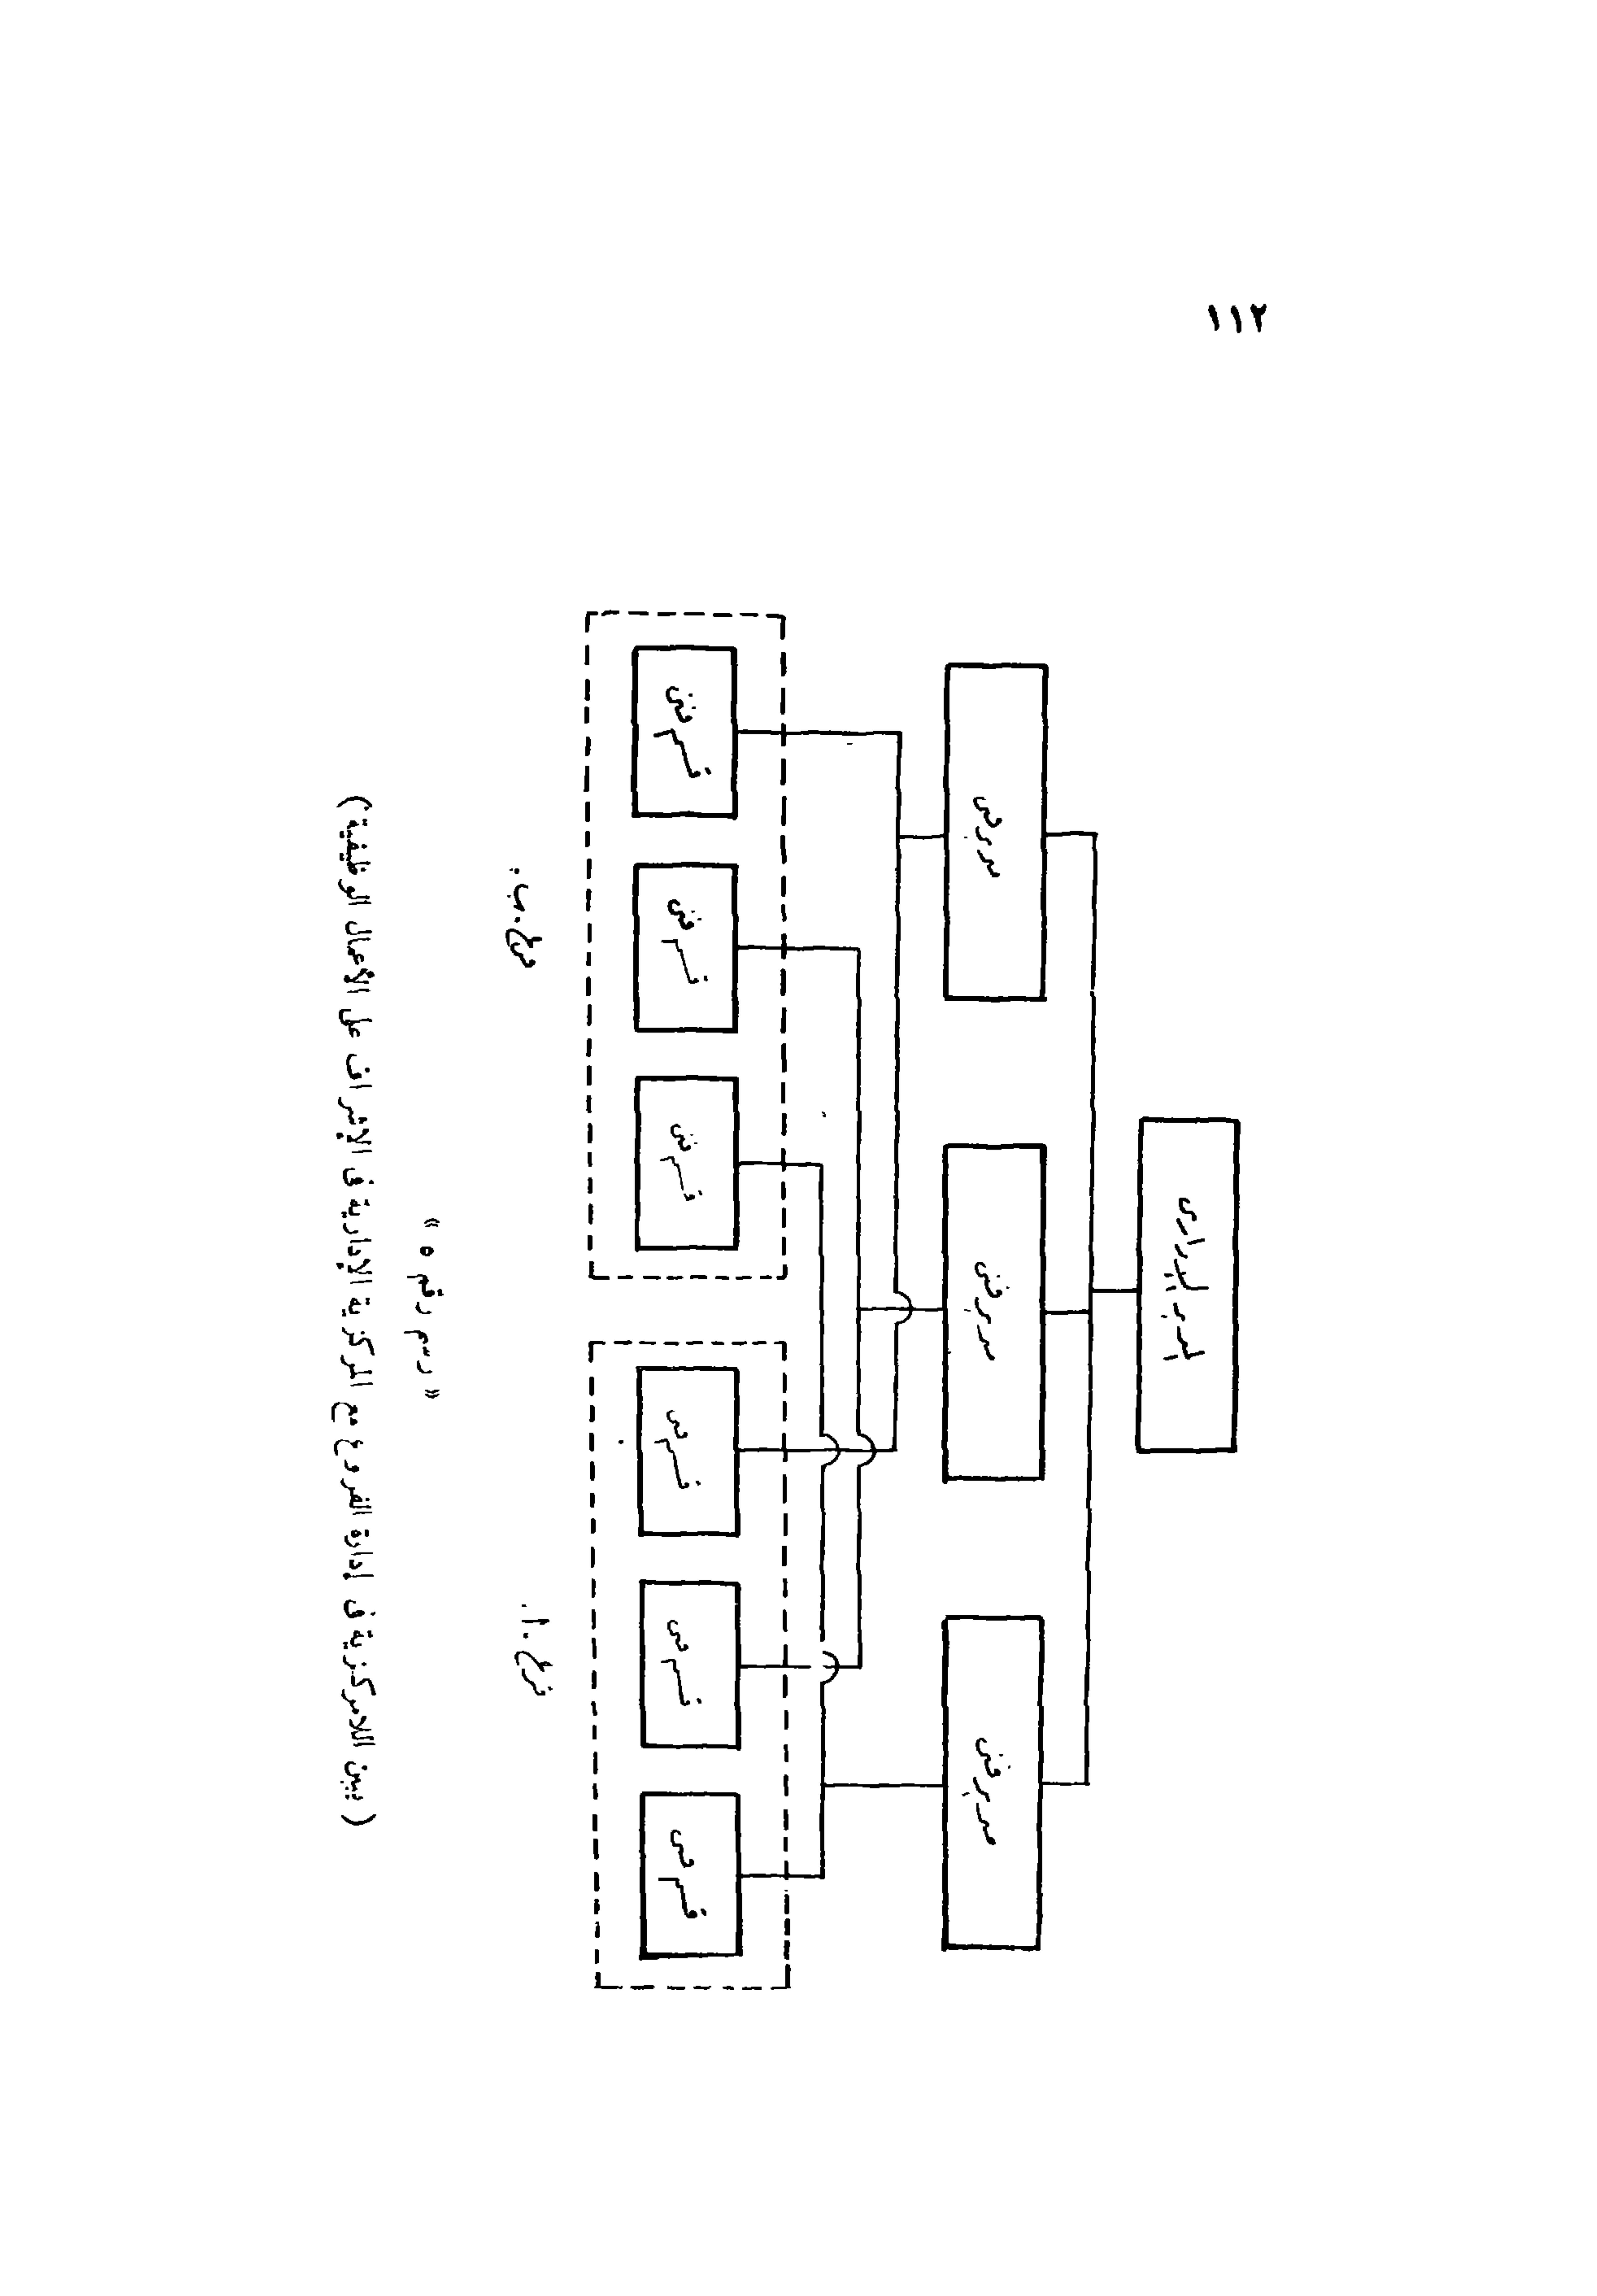 ١١٢
المدير الإدارى
مدير فنى
مدير فنى
مدير فنى
قسم فنى
قسم فنى
قسم فنى
قسم فنى
قسم فنى
قسم فنى
فرع «أ»
فرع «ب»
« رسم رقم ٥ »
( تبين اللامركزية فى إدارة الفروع مع المركزية الإدارية فى الإشراف على الأعمال الوظيفية )